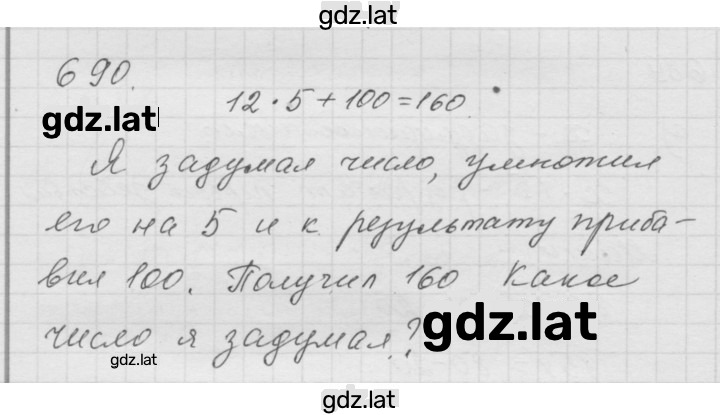 gdz.lat
690.
12·5+100=160
gdz.lat
Я задумал число, умножил
его на 5 и к результату приба-
вил 100. Получил 160 Какое
gdz.lat
число я задумал?
gdz.lat
gdz.lat